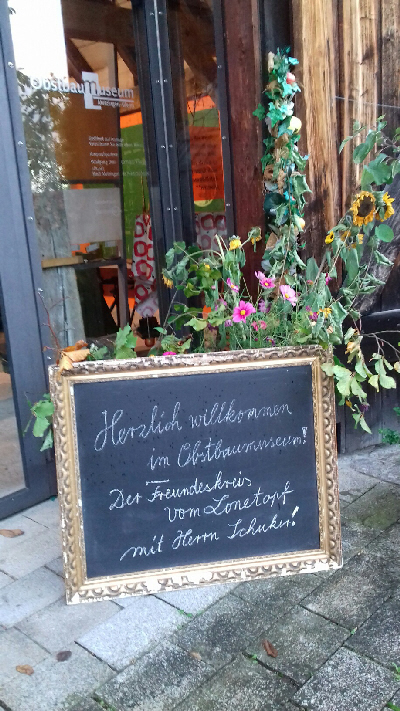 Obstbaumuseum
Herzlich willkommen
im Obstbaumuseum!
Der Freundeskreis
vom Lonetopf
mit Herrn Schuker!